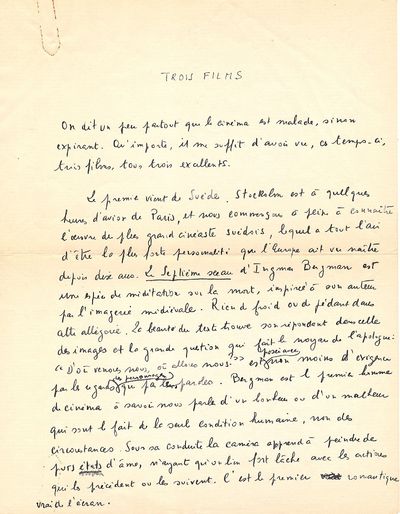 TROIS FILMS
On dit un peu partout que le cinéma est malade, sinon
expirant. Qu'importe, il me suffit d'avoir vu, ces temps-ci,
trois films, tous trois excellents.
Le premier vient de Suède. Stockholm est à quelques
heures d'avion de Paris, et nous commençons à peine à connaître
l'œuvre du plus grand cinéaste suédois, lequel a tout l'air
d'être la plus forte personnalité que l'Europe ait vu naître
depuis dix ans. Le Septième sceau d'Ingmar Bergman est
une espèce de méditation sur la mort, inspirée à son auteur
par l'imagerie médiévale. Rien de froid ou de pédant dans
cette allégorie. La beauté du texte trouve son répondant dans celle
des images et la grande question qui fait le noyau de l'apologue :
« D'où venons nous, où allons nous » est posée avec non moins d'exigence
par le regard des personnages que par leurs paroles. Bergman est le premier homme
de cinéma à savoir nous parler d'un bonheur ou d'un malheur
qui sont le fait de la seule condition humaine, non des
circonstances. Sous sa conduite la caméra apprend à peindre de
purs états d'âme, n'ayant qu'un lien fort lâche avec les actions
qui les précèdent ou les suivent. C'est le premier romantique
vrai de l'écran.